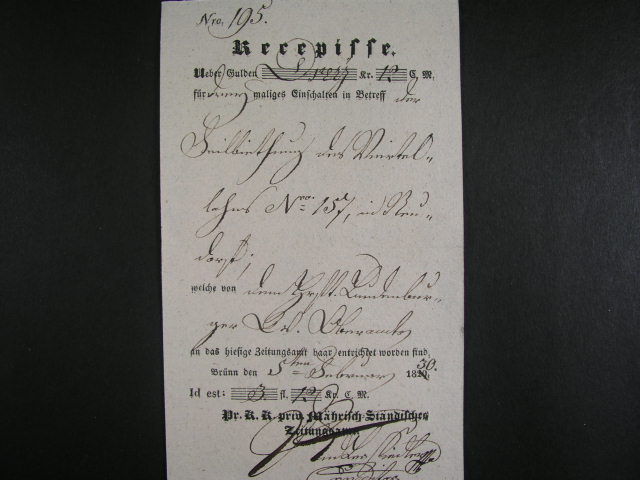 Nro. 195.
Recepisse.
Ueber Gulden Drey Kr. 12 C. M.
für dreymaliges Einschalten in Betreff der
Feilbiethung des Viertel-
lehns Nro. 157, in Neu-
dorf;
welche von dem Fürstl. Lundenbur-
ger Oberamte
an das hiesige Zeitungsamt baar entrichtet worden sind.
Brünn den 5ten Februar 1830.
Id est: 3. fl. 12 Kr. C. M.
Pr. K. K. priv. Mährisch-Ständisches
Zeitungsamt.